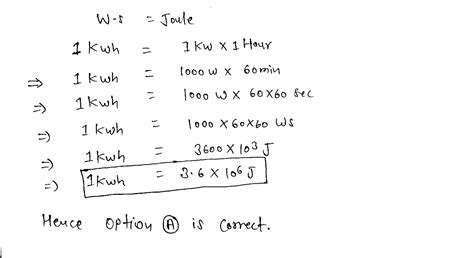 W-s = Joule
1 Kwh = 1 Kw × 1 Hour
⇒ 1 Kwh = 1000 w × 60 min
⇒ 1 Kwh = 1000 W × 60×60 sec
⇒ 1 Kwh = 1000 × 60×60 Ws
⇒ 1 Kwh = 3600 × 10³ J
⇒ 1 Kwh = 3.6 × 10⁶ J
Hence option Ⓐ is correct.